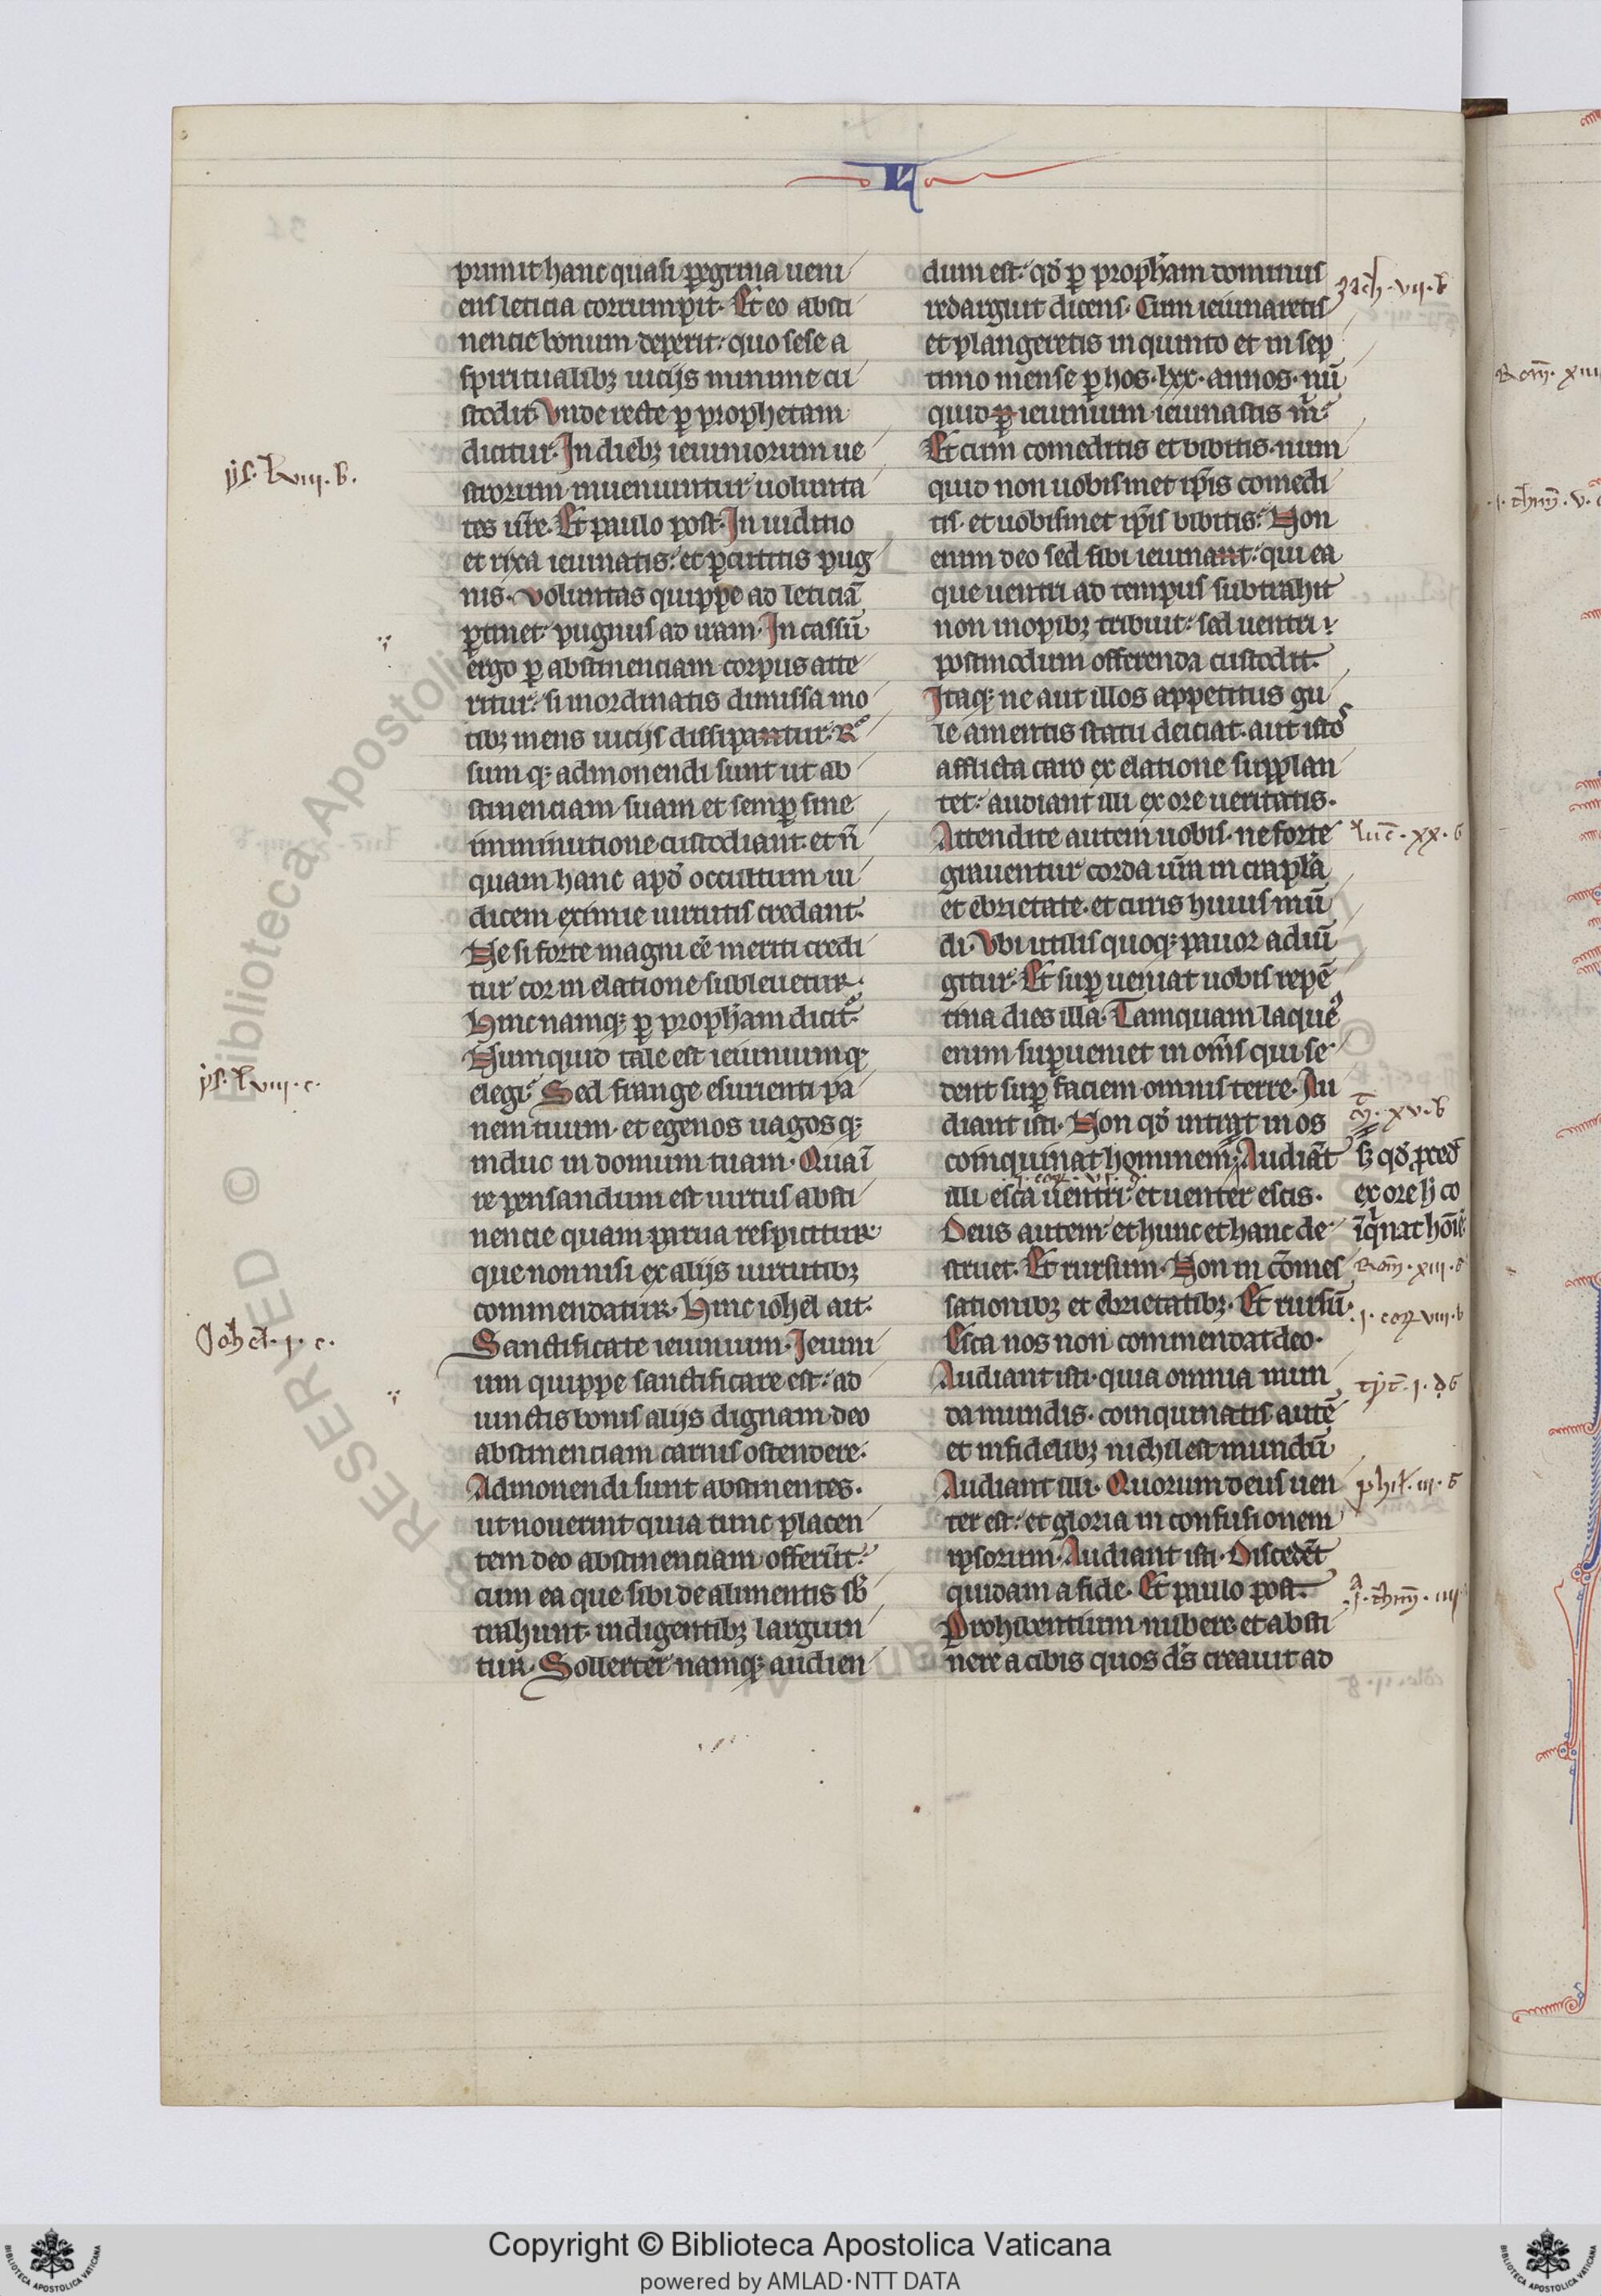 primit hanc quasi peregrina ueni
ens leticia corrumpit. Et eo absti
nencie bonum deperit: quo sese a
spiritualibꝫ uicijs minime cu
stodit. Vnde recte ꝑ prophetam
dicitur. In diebꝫ ieiuniorum ue
strorum inueniuntur uolunta
tes ur̄e. Et paulo post. In iuditio
et rixa ieiunatis: et ꝑcutitis pug
nis. Voluntas quippe ad leticiā
ꝑtinet: pugnus ad iram. In cassū
ergo ꝑ abstinenciam corpus atte
ritur: si inordinatis dimissa mo
tibꝫ mens uicijs dissipatur. Rͦ
sum qꝫ admonendi sunt ut ab
stinenciam suam et semꝑ sine
imminutione custodiant. et n̄
quam hanc apd̄ occultum iu
dicem eximie uirtutis credant.
Ne si forte magni ēe meriti credi
tur cor in elatione subleuetur.
Hinc namqꝫ ꝑ proph̄am dicit᷑.
Numquid tale est ieiunium qꝫ
elegi? Sed frange esurienti pa
nem tuum. et egenos uagosqꝫ
induc in domum tuam. Qua ī
re pensandum est uirtus absti
nencie quam parua respicitur
que non nisi ex alijs uirtutibꝫ
commendatur. Hinc iohel ait.
Sanctificate ieiunium. Ieiuni
um quippe sanctificare est: ad
iunctis bonis alijs dignam deo
abstinenciam carnis ostendere.
Admonendi sunt abstinentes.
ut nouerint quia tunc placen
tem deo abstinenciam offerūt:
cum ea que sibi de alimentis sb̄
trahunt indigentibꝫ largiun
tur. Sollerter namqꝫ audien
dum est: qd̄ ꝑ proph̄am dominus
redarguit dicens. Cum ieiunaretis
et plangeretis in quinto et in sep
timo mense ꝑ hos .lxx. annos. nū
quid ieiunium ieiunastis m̄?
Et cum comeditis et bibitis. num
quid non uobismet ip̄is comedi
tis. et uobismet ip̄is bibitis? Non
enim deo sed sibi ieiunat: qui ea
que uentri ad tempus subtrahit
non inopibꝫ tribuit: sed uentri
postmodum offerenda custodit.
Itaqꝫ ne aut illos appetitus gu
le a mentis statu deiciat. aut istos
afflicta caro ex elatione supplan
tet: audiant illi ex ore ueritatis.
Attendite autem uobis. ne forte
grauentur corda ur̄a in crapl̄a
et ebrietate. et curis huius mū
di. Vbi utilis quoqꝫ pauor adiū
gitur. Et suꝑueniat uobis repē
tina dies illa. Tamquam laqueꝰ
enim suꝑueniet in om̄s qui se
dent suꝑ faciem omnis terre. Au
diant isti. Non qd̄ intrat in os
coinquinat hominem. Audiāt
illi esca uentri: et uenter escis.
Deus autem et hunc et hanc de
struet. Et rursum. Non in cōmes
sationibꝫ et ebrietatibꝫ. Et rursū.
Esca nos non commendat deo.
Audiant isti. quia omnia mun
da mundis. coinquinatis autē
et infidelibꝫ nichil est mundū
Audiant illi. Quorum deus uen
ter est: et gloria in confusionem
ipsorum. Audiant isti. Discedēt
quidam a fide. Et paulo post.
Prohibentium nubere. et absti
nere a cibis quos ds̄ creauit ad
Johel. .i. c.
zach. .vii. b
luc̄. .xx. b
xv. b
sꝫ qd̄ ꝓced᷑
ex ore h̄ co
īqͥnat hoīe
Rom̄. .xiii.
.i. cor viii. b
tyt̄. .i.
phil̄. .iii. b
RESERVED © Biblioteca Apostolica
Copyright © Biblioteca Apostolica Vaticana
powered by AMLAD·NTT DATA